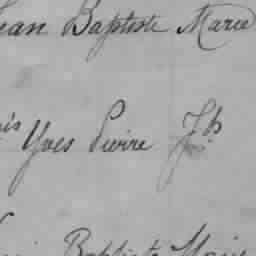 ean Baptiste Marie
is Yves Pierre Jh
Baptiste Marie